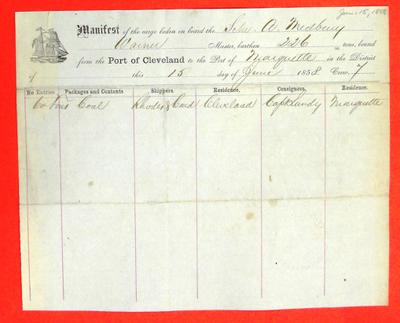 June 15, 1858
Manifest of the cargo laden on board the Schr. A. Medbury
Warner Master, burthen 226 tons, bound
from the Port of Cleveland to the Port of Marquette in the District
of this 15 day of June 1858 Crew. 7
No Entries Packages and Contents Shippers Residence, Consignees, Residence.
Tons Coal Rhodes & Card Cleveland Marquette